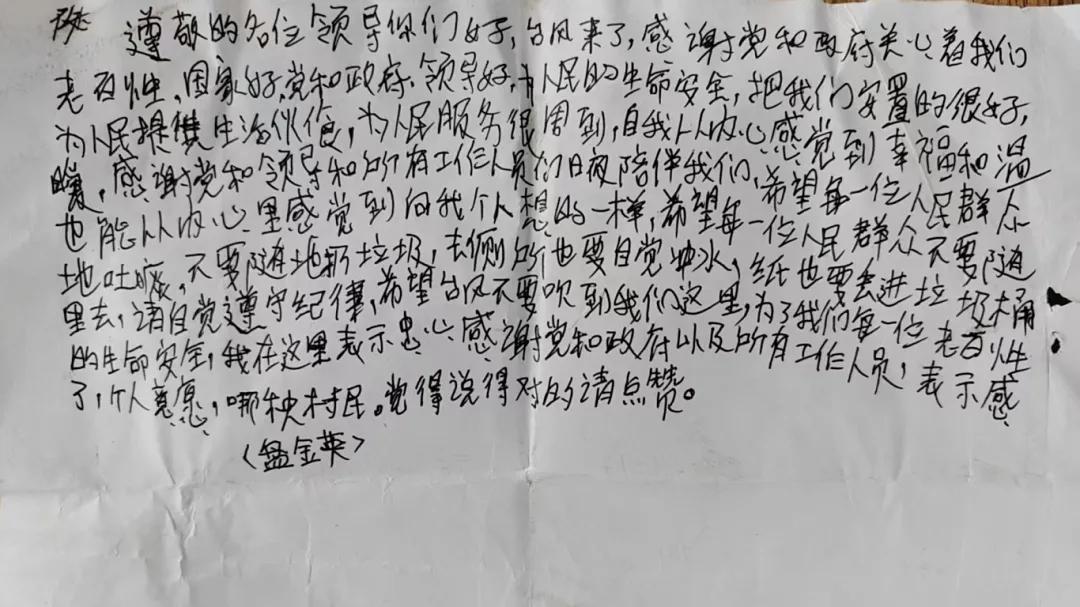 遵敬的各位领导你们好，台风来了，感谢党和政府关心着我们
老百性，国家好，党和政府，领导好，为人民的生命安全，把我们安置的很好，
为人民提供生活伙食，为人民服务很周到，自我从内心感觉到幸福和温
暖，感谢党和领导和所有工作人员们日夜陪伴我们，希望每一位人民群众
也能从内心里感觉到向我个人想的一样，希望每一位人民群众不要随
地吐痰，不要随地扔垃圾，去侧所也要自觉冲水，纸也要丢进垃圾桶
里去，请自觉遵守纪律，希望台风不要吹到我们这里，为了我们每一位老百性
的生命安全，我在这里表示忠心感谢党和政府以及所有工作人员，表示感
了，个人意愿，哪秧村民。觉得说得对的请点赞。
〈盘金英〉